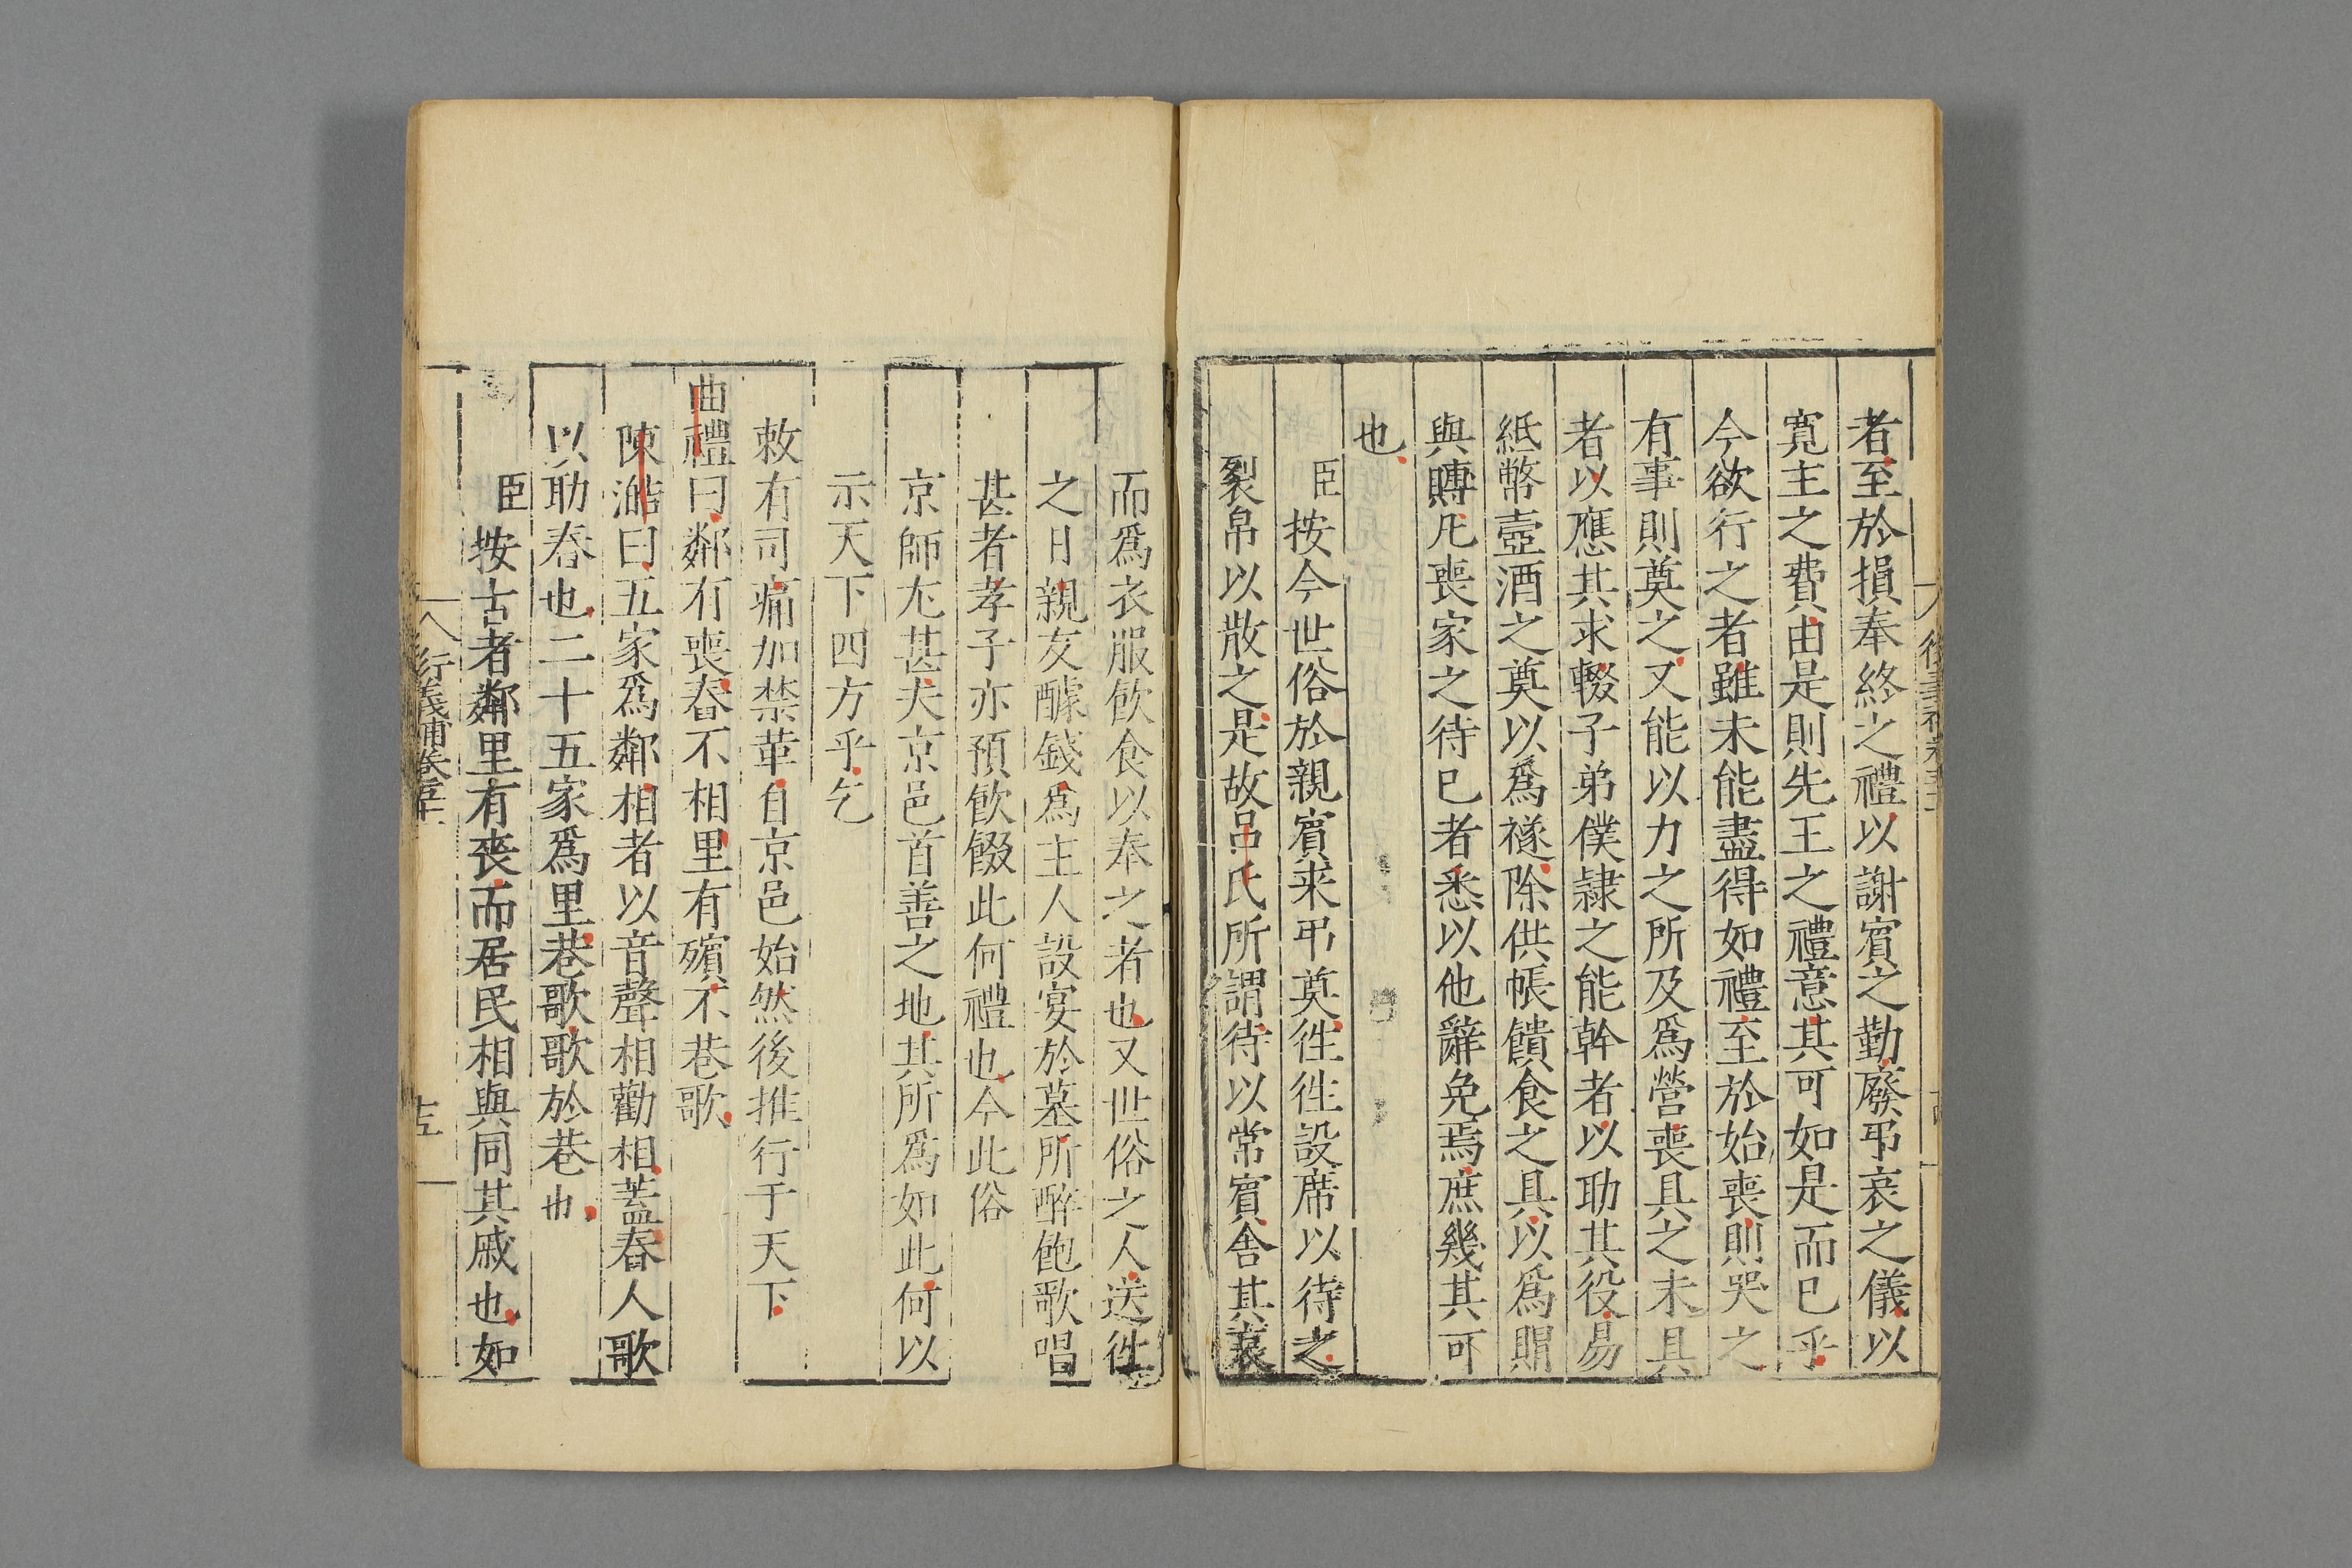 者至於損奉終之禮以謝賓之勤廢弔哀之儀以
寛主之費由是則先王之禮意其可如是而已乎
今欲行之者雖未能盡得如禮至於始喪則哭之
有事則奠之又能以力之所及爲營喪具之未具
者以應其求輟子弟僕隷之能幹者以助其役易
紙幣壺酒之奠以爲襚除供帳饋食之具以爲賵
與賻凡喪家之待已者悉以他辭免焉庶幾其可
也
臣按今世俗於親賓来弔奠徃徃設席以待之
裂帛以散之是故吕氏所謂待以常賓舍其哀
而爲衣服飮食以奉之者也又世俗之人送徃
之日親友醵錢爲主人設宴於墓所醉飽歌唱
甚者孝子亦預飮餟此何禮也今此俗
京師尤甚夫京邑首善之地其所爲如此何以
示天下四方乎乞
敕有司痛加禁革自京邑始然後推行于天下
曲禮曰鄰有喪舂不相里有殯不巷歌
陳澔曰五家爲鄰相者以音聲相勸相蓋舂人歌
以助舂也二十五家爲里巷歌歌於巷也
臣按古者鄰里有喪而居民相與同其戚也如
行義補卷五十一
十五